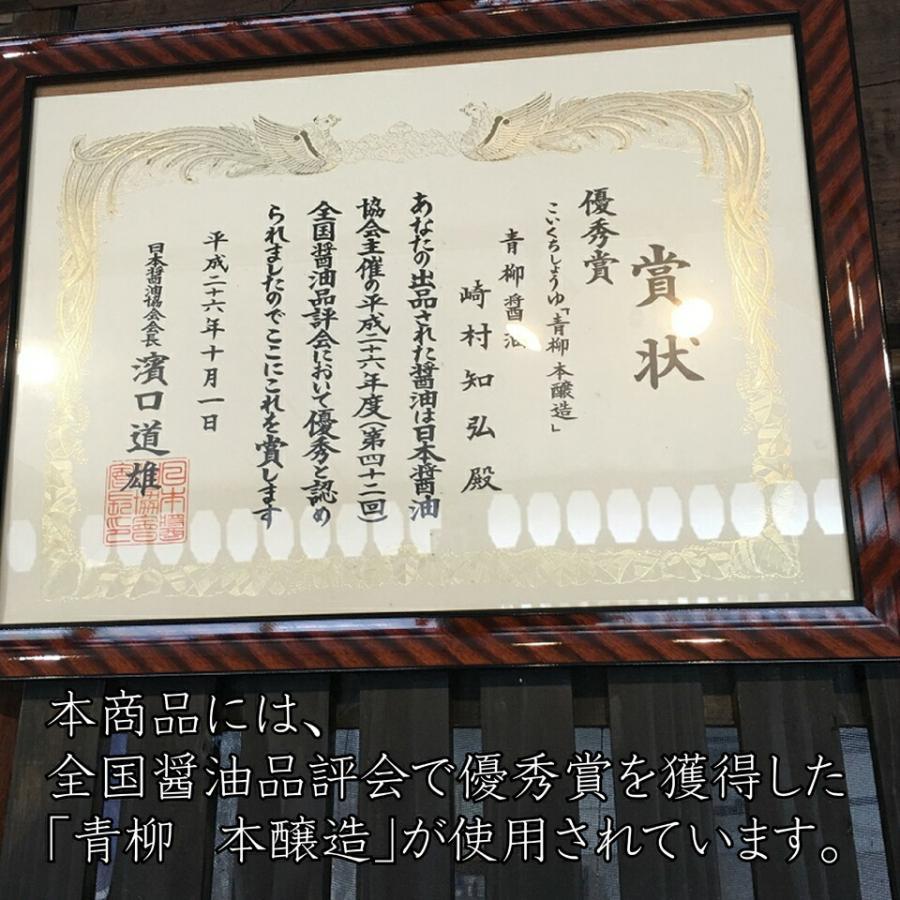 賞状
優秀賞
こいくちしょうゆ「青柳 本醸造」
青柳醤油
崎村知弘殿
あなたの出品された醤油は日本醤油
協会主催の平成二十六年度(第四十二回)
全国醤油品評会において優秀と認め
られましたのでここにこれを賞します
平成二十六年十月一日
日本醤油協会会長 濱口道雄
本商品には、
全国醤油品評会で優秀賞を獲得した
「青柳 本醸造」が使用されています。